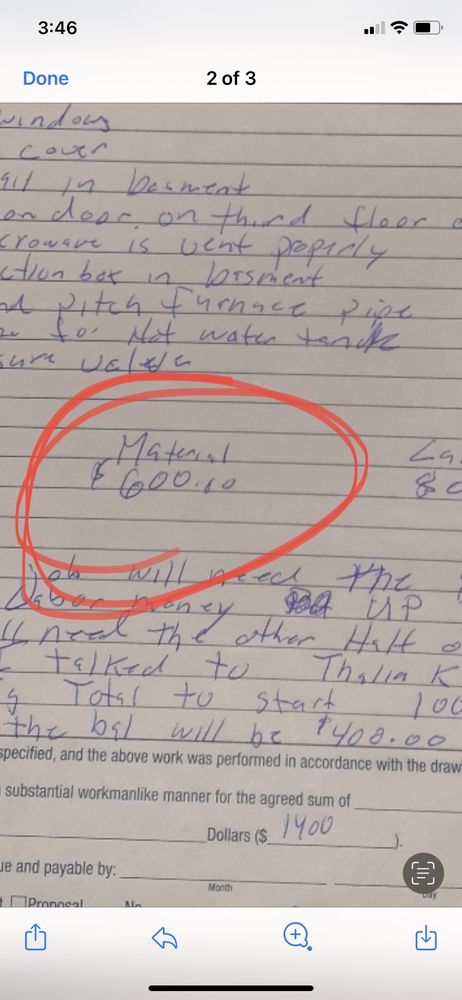 3:46
Done
2 of 3
windows
cover
in basment
door on third floor
crowave is vent properly
ction box in basment
pitch furnace pipe
for Hot water tank
sure valve
Material
La
$600.00
80
job will need the
Labor money UP
ll need the other Half o
I talked to Thalia K
g Total to start 100
the bal will be $400.00
specified, and the above work was performed in accordance with the draw
substantial workmanlike manner for the agreed sum of
Dollars ($ 1400 ).
ue and payable by:
Month
Day
Proposal No